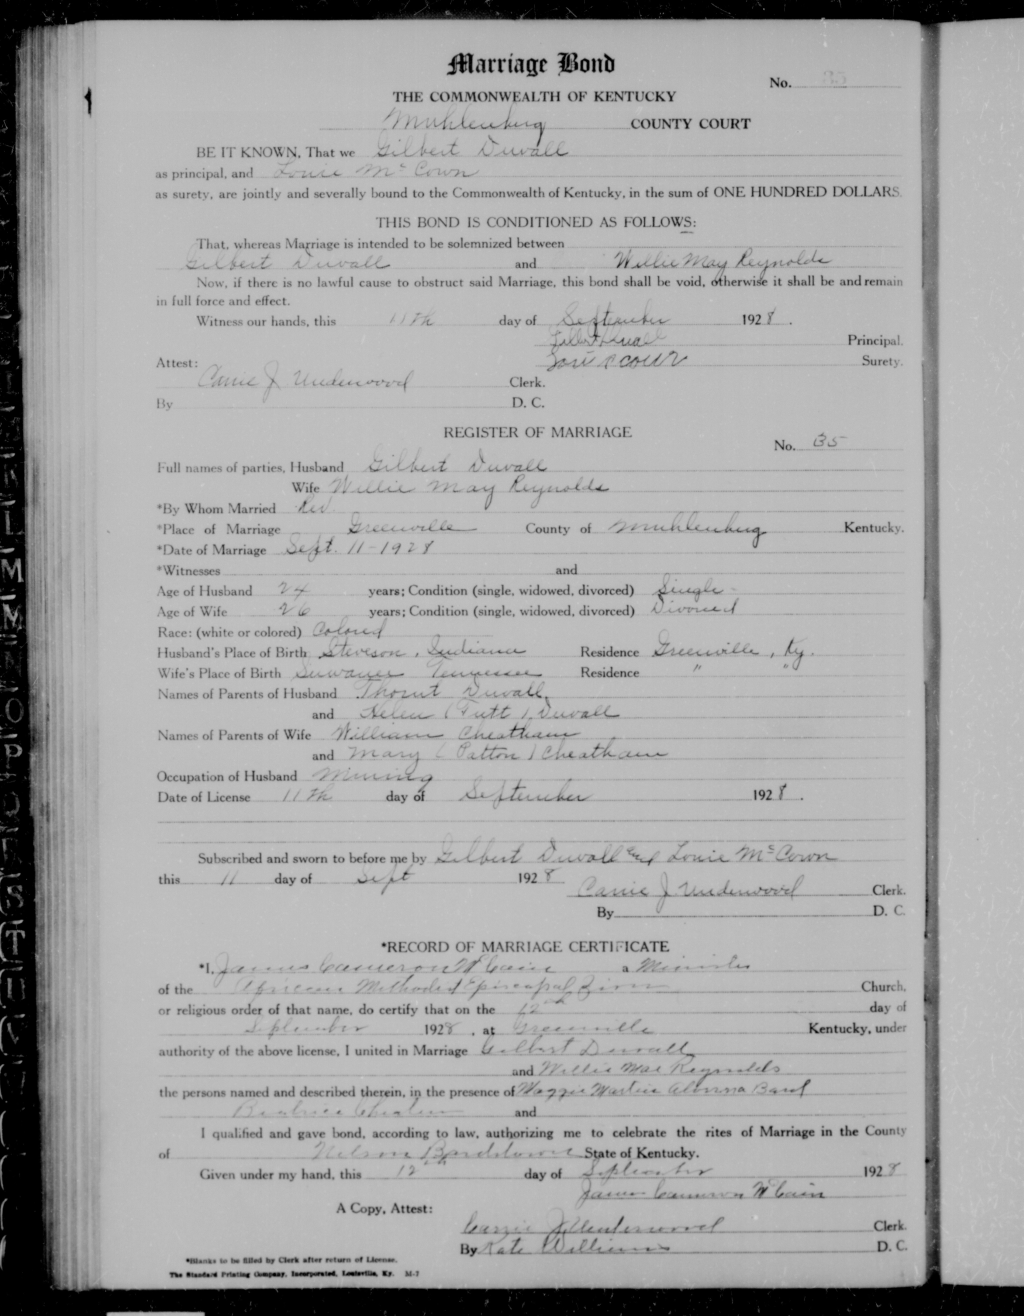 Marriage Bond
No. 35
THE COMMONWEALTH OF KENTUCKY
Muhlenberg COUNTY COURT
BE IT KNOWN, That we Gilbert Duvall
as principal, and Louie McCown
as surety, are jointly and severally bound to the Commonwealth of Kentucky, in the sum of ONE HUNDRED DOLLARS.
THIS BOND IS CONDITIONED AS FOLLOWS:
That, whereas Marriage is intended to be solemnized between
Gilbert Duvall and Willie May Reynolds
Now, if there is no lawful cause to obstruct said Marriage, this bond shall be void, otherwise it shall be and remain
in full force and effect.
Witness our hands, this 11th day of September 1928.
Gilbert Duvall Principal.
Attest: Surety.
Carrie J. Underwood Clerk.
By D. C.
REGISTER OF MARRIAGE
No. 35
Full names of parties, Husband Gilbert Duvall
Wife Willie May Reynolds
*By Whom Married Rev
*Place of Marriage Greenville County of Muhlenberg Kentucky.
*Date of Marriage Sept. 11-1928
*Witnesses and
Age of Husband 24 years; Condition (single, widowed, divorced) Single
Age of Wife 26 years; Condition (single, widowed, divorced) Divorced
Race: (white or colored) Colored
Husband's Place of Birth Steveson, Indiana Residence Greenville, Ky.
Wife's Place of Birth Suwanee Tennessee Residence " "
Names of Parents of Husband Thornt Duvall
and Helen (Tutt) Duvall
Names of Parents of Wife William Cheatham
and Mary (Patton) Cheatham
Occupation of Husband Mining
Date of License 11th day of September 1928.
Subscribed and sworn to before me by Gilbert Duvall and Louie McCown
this 11 day of Sept 1928
Carrie J. Underwood Clerk.
By D. C.
*RECORD OF MARRIAGE CERTIFICATE
*I, James Cameron McCain a Minister
of the African Methodist Episcopal Zion Church,
or religious order of that name, do certify that on the 12th day of
September 1928, at Greenville Kentucky, under
authority of the above license, I united in Marriage Gilbert Duvall
and Willie Mae Reynolds
the persons named and described therein, in the presence of Maggie Martin Bard
Beatrice and
I qualified and gave bond, according to law, authorizing me to celebrate the rites of Marriage in the County
of Nelson Bardstown State of Kentucky.
Given under my hand, this 12th day of September 1928
James Cameron McCain
A Copy, Attest:
Carrie J Underwood Clerk.
By Kate Williams D. C.
*Blanks to be filled by Clerk after return of License.
The Standard Printing Company, Incorporated, Louisville, Ky. M-7
L
M
N
O
P
S
T
U